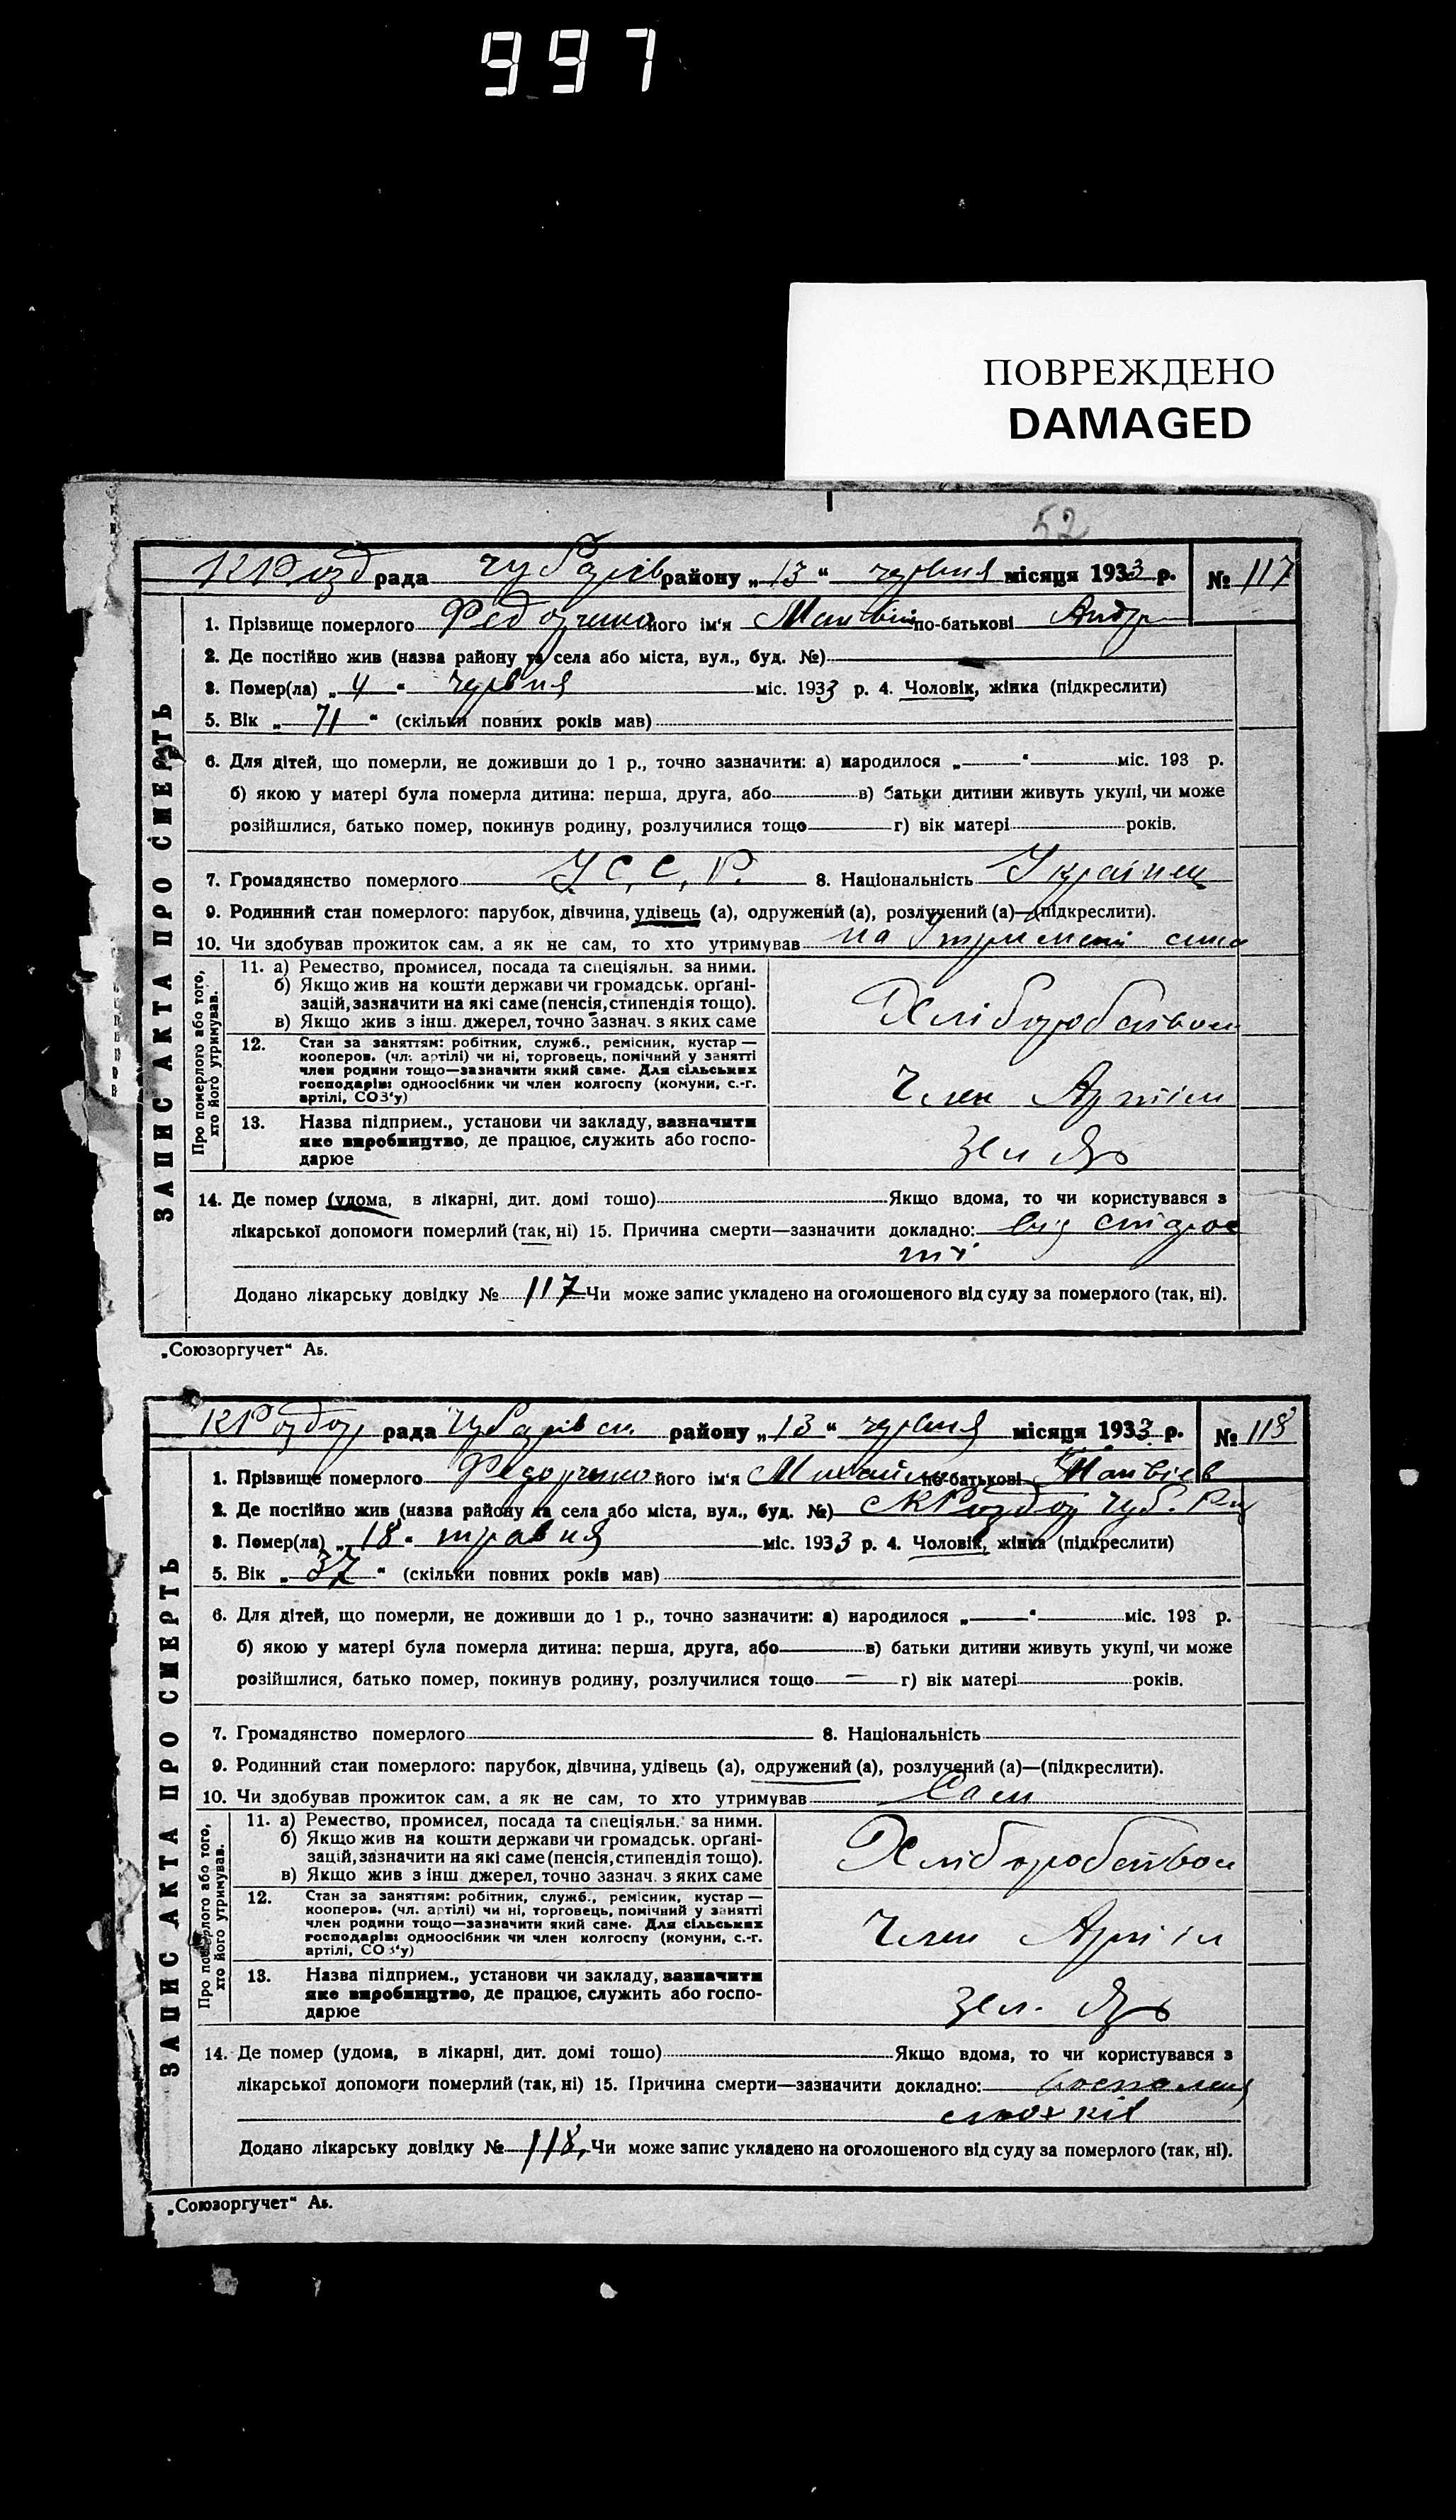 997
ПОВРЕЖДЕНО
DAMAGED
52
КРозд рада Чубарів району „13“ червня місяця 1933 р. № 117
1. Прізвище померлого Федорченко його ім'я Матвій по-батькові Андр
2. Де постійно жив (назва району та села або міста, вул., буд. №)
3. Помер(ла) „4“ червня міс. 1933 р. 4. Чоловік, жінка (підкреслити)
5. Вік „71“ (скільки повних років мав)
6. Для дітей, що померли, не доживши до 1 р., точно зазначити: а) народилося „—“ міс. 193 р.
б) якою у матері була померла дитина: перша, друга, або в) батьки дитини живуть укупі, чи може
розійшлися, батько помер, покинув родину, розлучилися тощо г) вік матері років.
7. Громадянство померлого У.С.С.Р. 8. Національність Українец
9. Родинний стан померлого: парубок, дівчина, удівець (а), одружений (а), розлучений (а)—(підкреслити).
10. Чи здобував прожиток сам, а як не сам, то хто утримував на втриманні сина
ЗАПИС АКТА ПРО СМЕРТЬ
Про померлого або того,
хто його утримував.
11. а) Ремество, промисел, посада та спеціяльн. за ними.
б) Якщо жив на кошти держави чи громадськ. органі-
зацій, зазначити на які саме (пенсія, стипендія тощо).
в) Якщо жив з інш. джерел, точно зазнач. з яких саме
Хліборобством
12. Стан за заняттям: робітник, служб., ремісник, кустар —
кооперов. (чл. артілі) чи ні, торговець, помічний у занятті
член родини тощо—зазначити який саме. Для сільських
господарів: одноосібник чи член колгоспу (комуни, с.-г.
артілі, СОЗ'у)
Член Артіли
13. Назва підприєм., установи чи закладу, зазначити
яке виробництво, де працює, служить або госпо-
дарює
Зел Яр
14. Де помер (удома, в лікарні, дит. домі тошо) Якщо вдома, то чи користувався з
лікарської допомоги померлий (так, ні) 15. Причина смерти—зазначити докладно: від старос
ті
Додано лікарську довідку № 117 Чи може запис укладено на оголошеного від суду за померлого (так, ні).
„Союзоргучет“ Аб.
КРоздор рада Чубарівск. району „13“ червня місяця 1933 р. № 118
1. Прізвище померлого Федорченко його ім'я Михайло по-батькові Матвієв
2. Де постійно жив (назва району та села або міста, вул., буд. №) КРоздор Чуб. Рну
3. Помер(ла) „18“ травня міс. 1933 р. 4. Чоловік, жінка (підкреслити)
5. Вік „37“ (скільки повних років мав)
6. Для дітей, що померли, не доживши до 1 р., точно зазначити: а) народилося „—“ міс. 193 р.
б) якою у матері була померла дитина: перша, друга, або в) батьки дитини живуть укупі, чи може
розійшлися, батько помер, покинув родину, розлучилися тощо г) вік матері років.
7. Громадянство померлого 8. Національність
9. Родинний стан померлого: парубок, дівчина, удівець (а), одружений (а), розлучений (а)—(підкреслити).
10. Чи здобував прожиток сам, а як не сам, то хто утримував Сам
ЗАПИС АКТА ПРО СМЕРТЬ
Про померлого або того,
хто його утримував.
11. а) Ремество, промисел, посада та спеціяльн. за ними.
б) Якщо жив на кошти держави чи громадськ. органі-
зацій, зазначити на які саме (пенсія, стипендія тощо).
в) Якщо жив з інш джерел, точно зазнач. з яких саме
Хліборобством
12. Стан за заняттям: робітник, служб., ремісник, кустар —
кооперов. (чл. артілі) чи ні, торговець, помічний у занятті
член родини тощо—зазначити який саме. Для сільських
господарів: одноосібник чи член колгоспу (комуни, с.-г.
артілі, СОЗ'у)
Член Артіл
13. Назва підприєм., установи чи закладу, зазначити
яке виробництво, де працює, служить або госпо-
дарює
Зел. Яр
14. Де помер (удома, в лікарні, дит. домі тошо) Якщо вдома, то чи користувався з
лікарської допомоги померлий (так, ні) 15. Причина смерти—зазначити докладно:
Додано лікарську довідку № 118, Чи може запис укладено на оголошеного від суду за померлого (так, ні).
„Союзоргучет“ Аб.